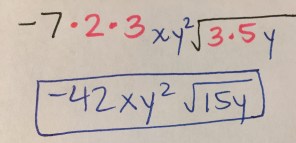 -7·2·3 xy²√3·5y
-42xy²√15y